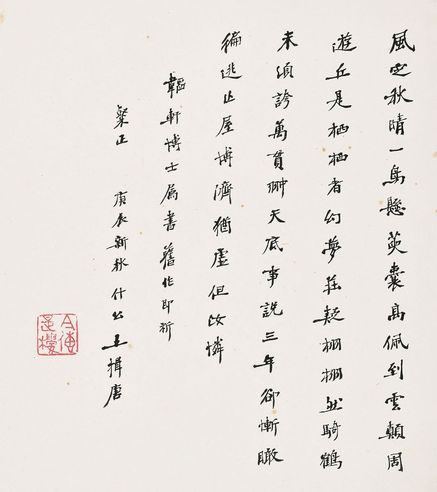 風定秋晴一鳥懸萸囊高佩到雲顛周
遊丘是栖栖者幻夢莊疑栩栩然騎鶴
未須誇萬貫翀天底事說三年卻慚瞰
徧逃亡屋博濟猶虛但憐
軒博士屬書舊作即祈
粲正 庚辰新秋什公王揖唐
今傳是樓